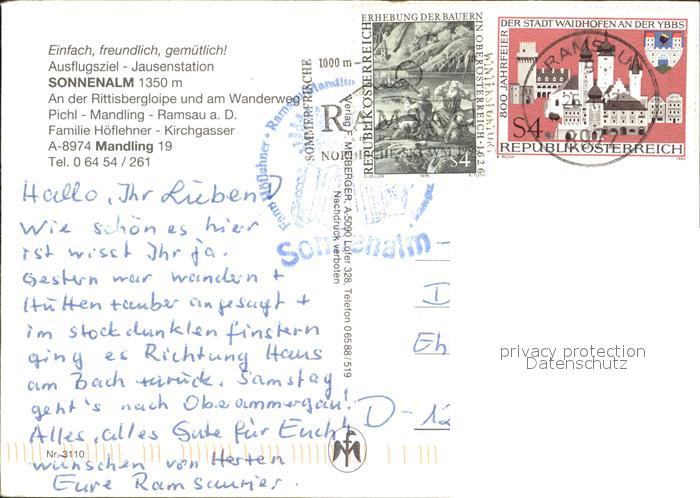 Einfach, freundlich, gemütlich!
Ausflugsziel - Jausenstation
SONNENALM 1350 m
An der Rittisbergloipe und am Wanderweg
Pichl - Mandling - Ramsau a. D.
Familie Höflehner - Kirchgasser
A-8974 Mandling 19
Tel. 0 64 54 / 261
Hallo, Ihr Lieben!
Wie schön es hier
ist wisst Ihr ja.
Gestern war wandern +
Hüttenzauber angesagt +
im stockdunklen finstern
ging es Richtung Haus
am Bach zurück. Samstag
geht's nach Oberammergau!
Alles, alles Gute für Euch!
wünschen von Herzen
Eure Ramsaurier.
Nr. 3110
SOMMERFRISCHE
1000 m
Fam. Höflehner - Ramsau Mandling
Sonnenalm
Verlag F. MEIBERGER, A-5090 Lofer 328, Telefon 06588/519
Nachdruck verboten
REPUBLIK ÖSTERREICH
ERHEBUNG DER BAUERN
IN OBERÖSTERREICH 1626
S4
1976
800 JAHRFEIER
DER STADT WAIDHOFEN AN DER YBBS
RAMSAU
S4
REPUBLIK ÖSTERREICH
D
Eh
D-12
privacy protection
Datenschutz